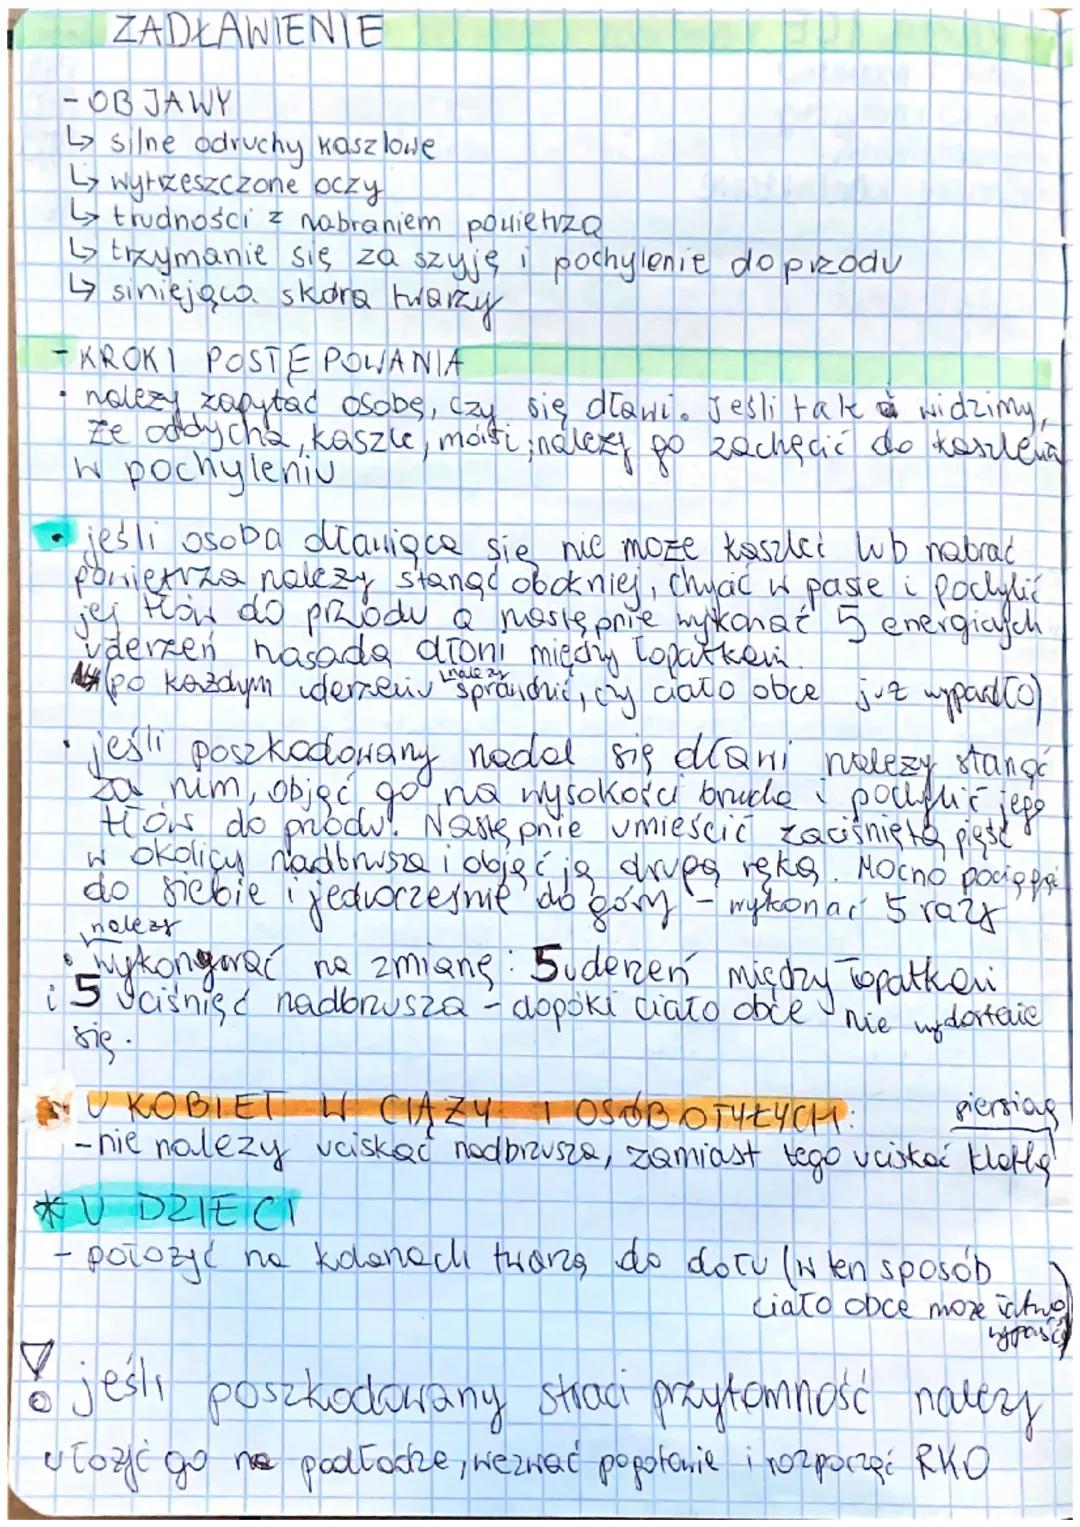 ZADŁAWIENIE
- OBJAWY
↳ silne odruchy kaszlowe
↳ wytrzeszczone oczy
↳ trudności z nabraniem powietrza
↳ trzymanie się za szyję i pochylenie do przodu
↳ siniejąca skóra twarzy
- KROKI POSTĘPOWANIA
• należy zapytać osobę, czy się dławi. Jeśli tak widzimy,
że oddycha, kaszle, mówi; należy go zachęcić do kaszlenia
w pochyleniu
• jeśli osoba dławiąca się nie może kaszleć lub nabrać
powietrza należy stanąć obok niej, chycić w pasie i pochylić
jej tłów do przodu a następnie wykonać 5 energicych
uderzeń nasadą dłoni między łopatkami.
(po każdym uderzeniu należy sprawdzić, czy ciało obce już wypadło)
• jeśli poszkodowany nadal się dławi należy stanąć
za nim, objąć go na wysokości brzucha i pochylić jego
tłów do przodu. Następnie umieścić zaciśniętą pięść
w okolicy nadbrzusza i objąć ją drugą ręką. Mocno pociągnąć
do siebie i jednocześnie do góry - wykonać 5 razy
należy
• wykonywać na zmianę: 5 uderzeń między łopatkami
i 5 uciśnięć nadbrzusza - dopóki ciało obce nie wydostanie
się.
U KOBIET W CIĄŻY I OSÓB OTYŁYCH:
- nie należy uciskać nadbrzusza, zamiast tego uciskać klatkę piersiową
* U DZIECI
- położyć na kolanach twarzą do dołu (w ten sposób
ciało obce może łatwo
wypaść)
! jeśli poszkodowany straci przytomność należy
ułożyć go na podłodze, wezwać pogotowie i rozpocząć RKO